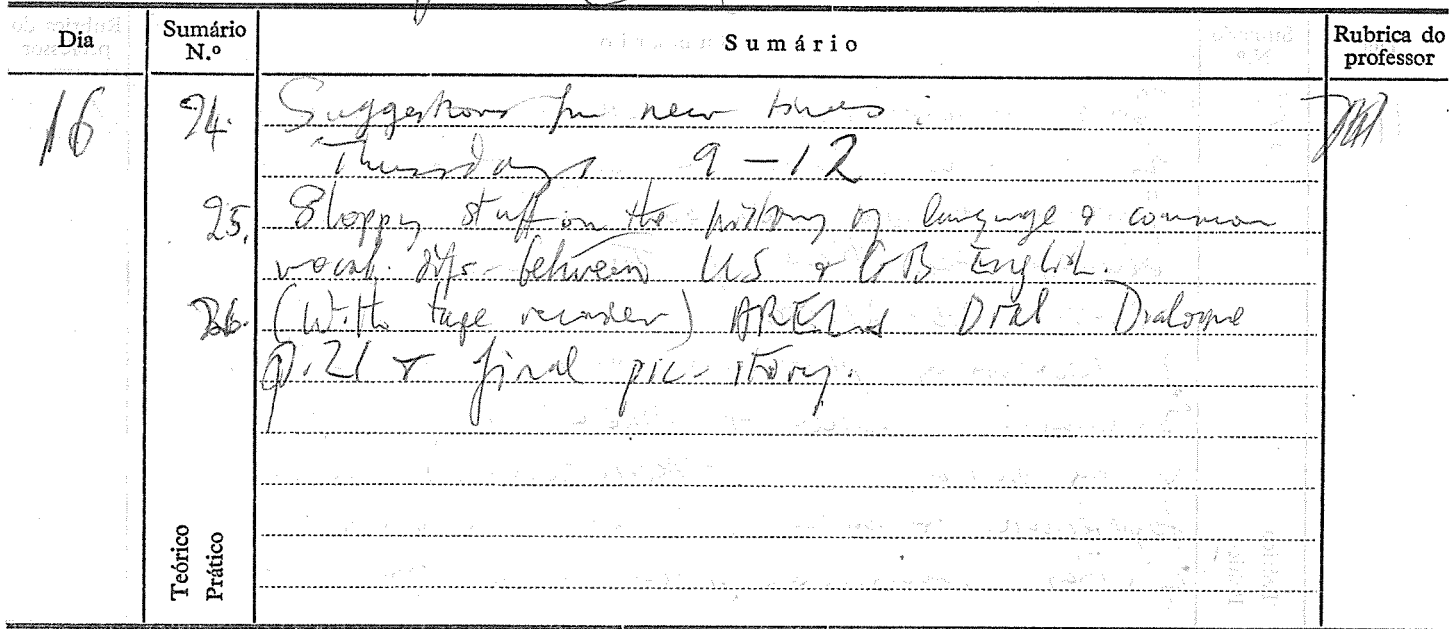 Dia Sumário N.º Sumário Rubrica do professor
16 24. Suggestions for new times:
Thursdays 9-12
25. Sloppy stuff on the history of language & common
vocab. difs. between US & GB English.
26. (With tape recorder) ARELS Oral Dialogue
p.21 & final pic-story.
Teórico
Prático